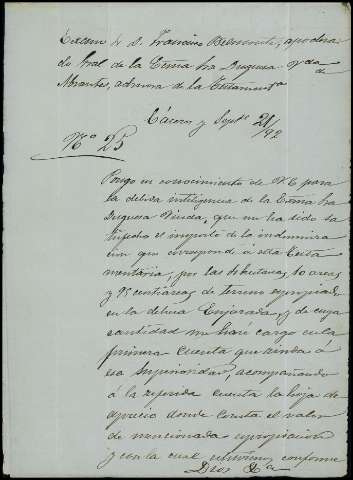 Excmo Sr. D. Francisco Belmonte, apodera-
do gral de la Exma Sra Duquesa Vda de
Abrantes, admora de la Testamentª
Cáceres y Septe 21/92
No 25
Pongo en conocimiento de V.E. para
la debida inteligencia de la Exma Sra
Duquesa Viuda, que me ha sido sa-
tisfecho el importe de la indemniza-
cion que correspondió á esta Testa-
mentaría, por las hectareas 10 areas
y 95 centiareas de terreno expropiado
en la dehesa Enjarada, y de cuya
cantidad me haré cargo en la
primera cuenta que rinda á
esa Superioridad, acompañando
á la referida cuenta la hoja de
aprecio donde consta el valor
de mencionada expropiacion
y con la cual estuvimos conforme
Dios &a